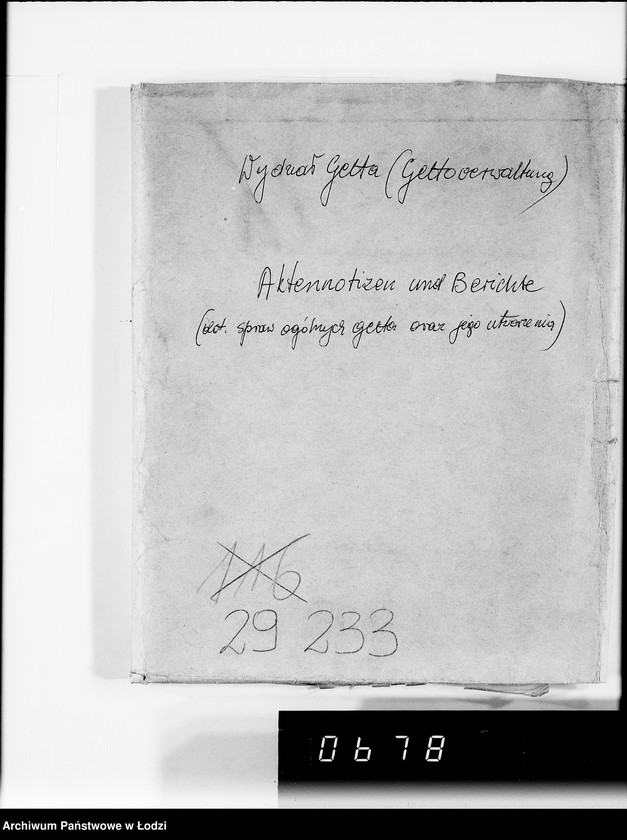 Wydział Getta (Gettoverwaltung)
Aktennotizen und Berichte
(dot. spraw ogólnych getta oraz jego utworzenia)
116
29 233
0678
Archiwum Państwowe w Łodzi